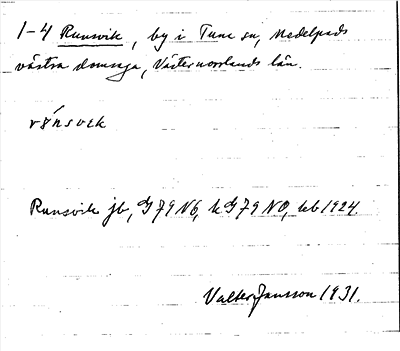 1-4 Runsvik, by i Tuna sn, Medelpads
västra domsaga, Västernorrlands län.
Runsvik jb, G79 NÖ, kG79 NO, kb 1924.
Valter Jansson 1931.